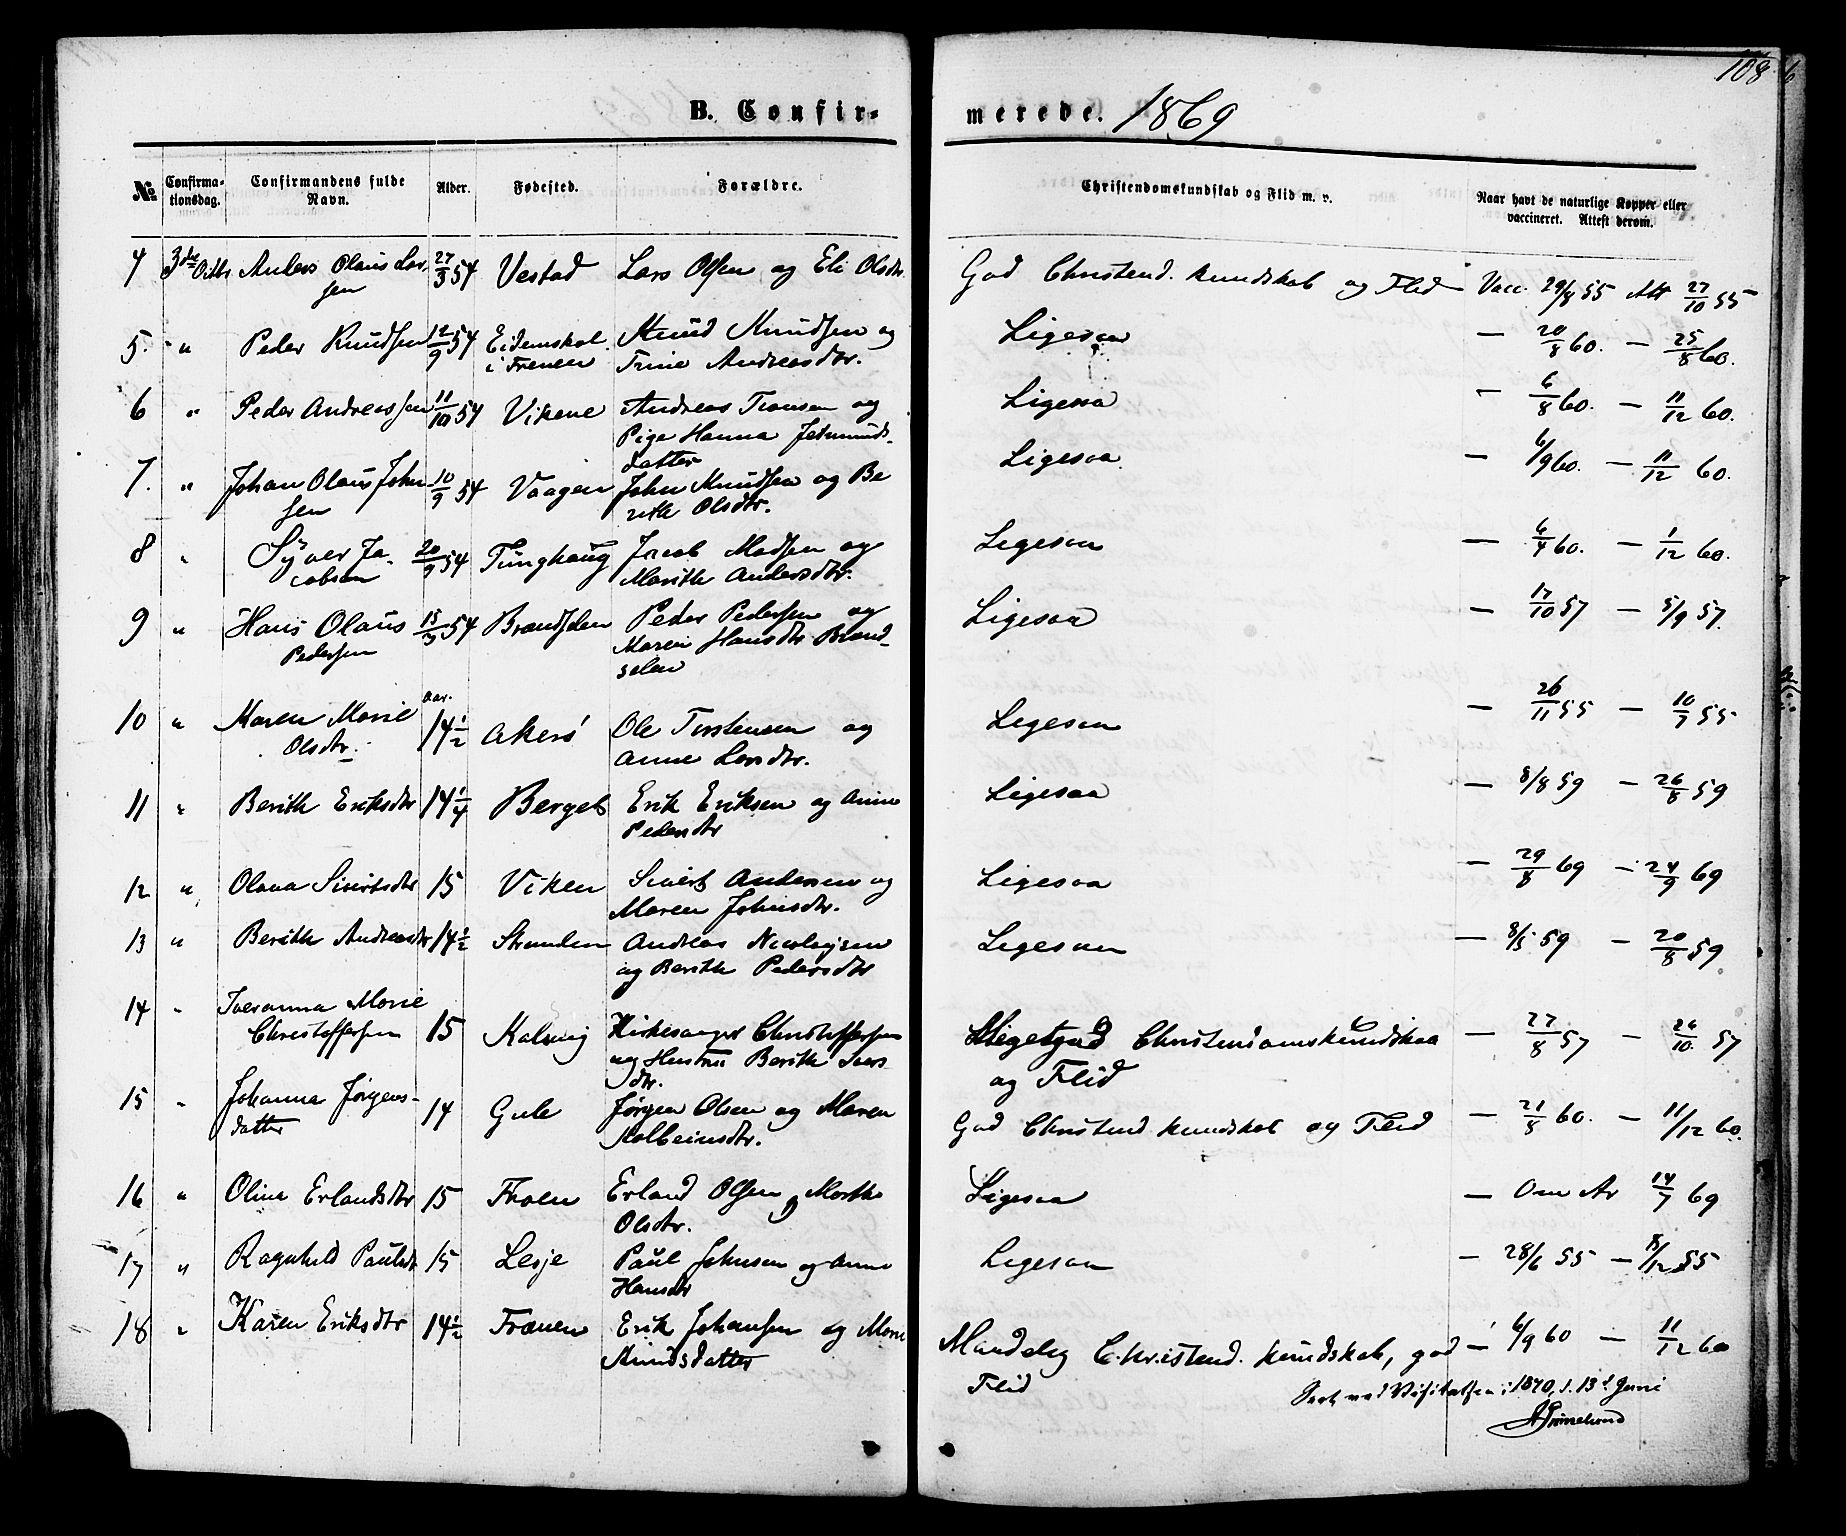 108
B. Confir- merede. 1869
№ Confirma-tionsdag. Confirmandens fulde Navn. Alder. Fødested. Forældre. Christendomskundskab og Flid m. v. Naar havt de naturlige Kopper eller vaccineret. Attest derom.
4 3die Octbr Anders Olaus Lar- 27/3 54 Vestad Lars Olsen og Eli Olsdtr. God Christend. kundskab og Flid Vacc. 29/8 55 Att 27/10 55
sen
5. " Peder Knudsen 12/9 54 Eidemskol. Knud Knudsen og Ligesaa — 20/8 60. — 25/8 60.
i Frenen Trine Andreasdtr.
6 " Peder Andreassen 11/10 54 Vikene Andreas Tronsen og Ligesaa - 6/8 60. — 11/12 60.
Pige Hanna Jetmunds-
datter
7. " Johan Olaus John 10/9 54 Vaagen John Knudsen og Be Ligesaa — 6/9 60. — 11/12 60.
sen rith Olsdtr.
8 " Syver Ja- 20/9 54 Tunghaug Jacob Madsen og Ligesaa — 6/4 60. — 1/12 60.
cobsen Marith Andersdtr.
9 " Hans Olaus 15/3 54 Brandslen Peder Pedersen og Ligesaa — 17/10 57 — 5/9 57.
Pedersen Maren Hansdtr Brand-
selen
10 " Karen Marie Aar. 14 1/2 Akerø Ole Torstensen og Ligesaa — 26/11 55 — 10/7 55
Olsdtr. Anne Larsdtr.
11 " Berith Eriksdtr 14 1/4 Berget Erik Eriksen og Anne Ligesaa — 8/8 59 — 26/8 59
Pedersdtr
12 " Olava Sivertsdtr 15 Viken Sivert Andersen og Ligesaa — 29/8 69 — 24/9 69
Maren Johnsdtr.
13 " Berith Andreasdtr 14 1/2 Stranden Andreas Nicolaysen Ligesaa — 8/5 59 — 20/8 59
og Berith Pedersdtr
14 " Iveranna Marie 15 Kalsvig Kirkesanger Christoffersen Meget god Christendomskundskab — 27/8 57 — 26/10. 57
Christoffersen og Hustru Berith Ivers og Flid
dtr.
15 " Johanna Jørgens- 14 Gule Jørgen Olsen og Maren God Christend kundskab og Flid — 21/8 60. — 11/12 60.
datter Kolbeinsdtr.
16 " Olina Erlandsdtr 15 Fraen Erland Olsen og Marthe Ligesaa — Om Ar 14/7 69
Olsdtr.
17 " Ragnhild Paulsdtr 15 Lesje Paul Johnsen og Anne Ligesaa — 28/6 55 — 15/12 55
Hansdtr
18 " Karen Eriksdtr 14 1/2 Frænen Erik Johansen og Marie Maadelig Christend. kundskab, god — 6/9 60 — 11/12 60
Knudsdatter Flid
Seet ved Visitatsen i 1870, d. 13d Juni